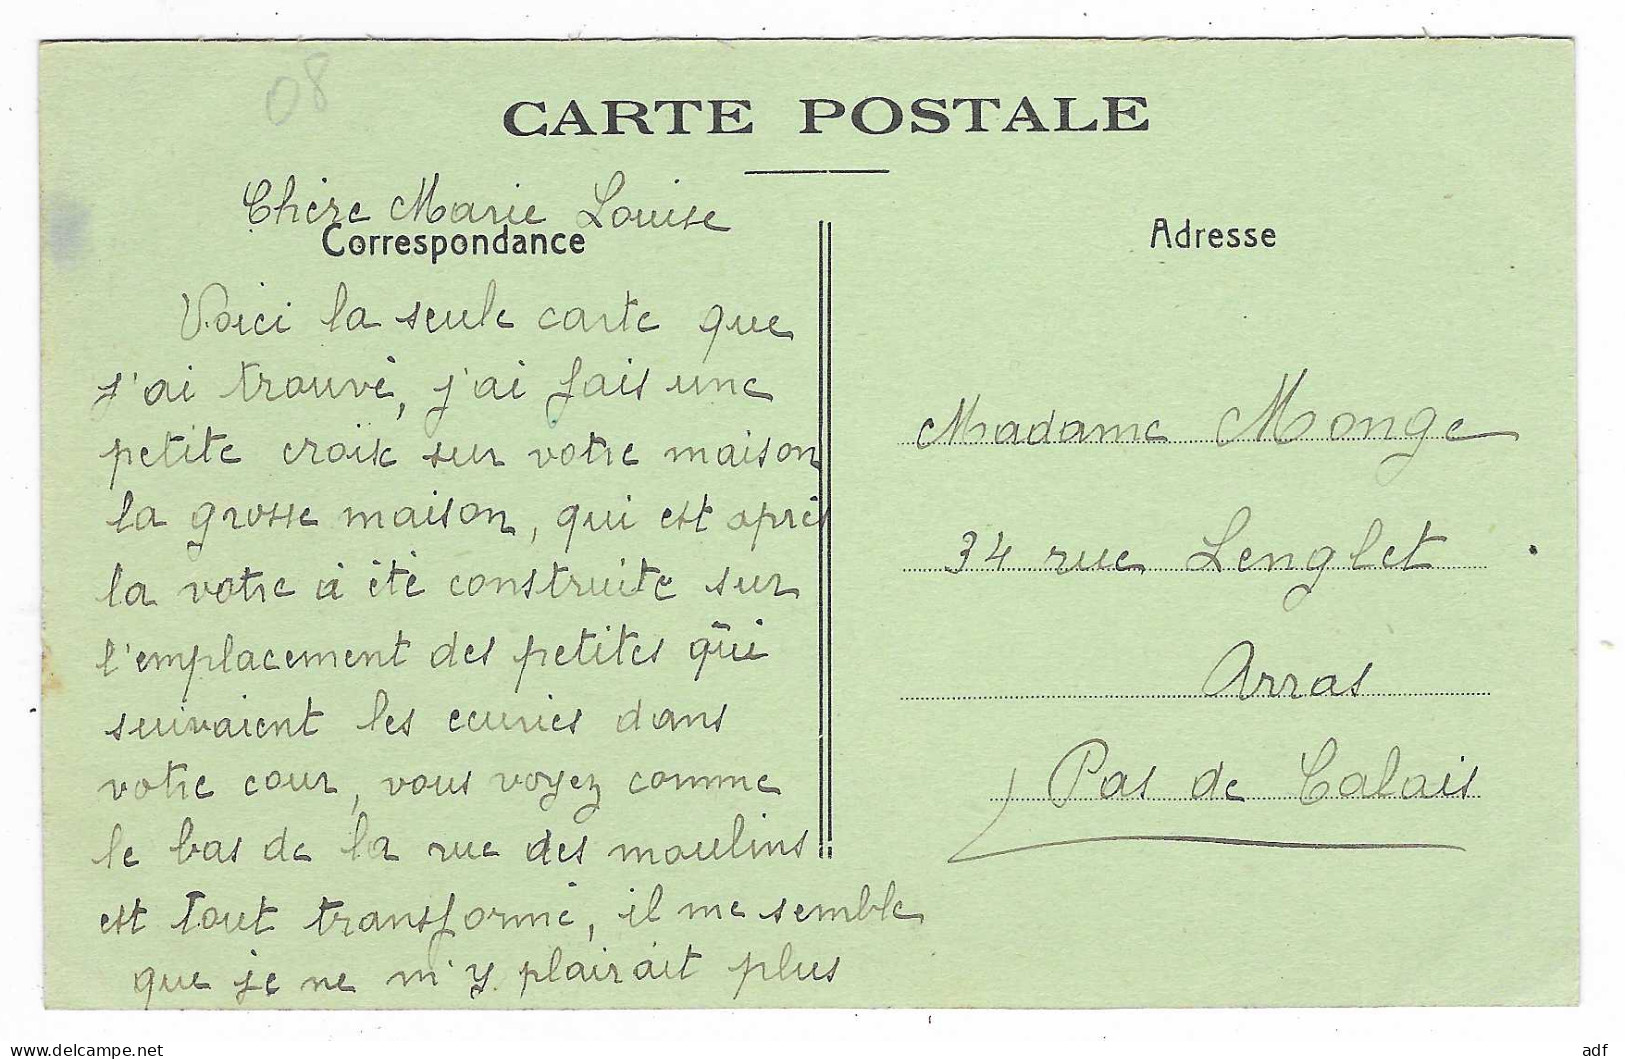 08
CARTE POSTALE
Chère Marie Louise
Correspondance
Voici la seule carte que
j'ai trouvé, j'ai fais une
petite croix sur votre maison
la grosse maison, qui est après
la votre à été construite sur
l'emplacement des petites qui
suivaient les ecuries dans
votre cour, vous voyez comme
le bas de la rue des moulins
est tout transformé, il me semble
que je ne m'y plairait plus
Adresse
Madame Monge
34 rue Lenglet
Arras
Pas de Calais
www.delcampe.net
adf